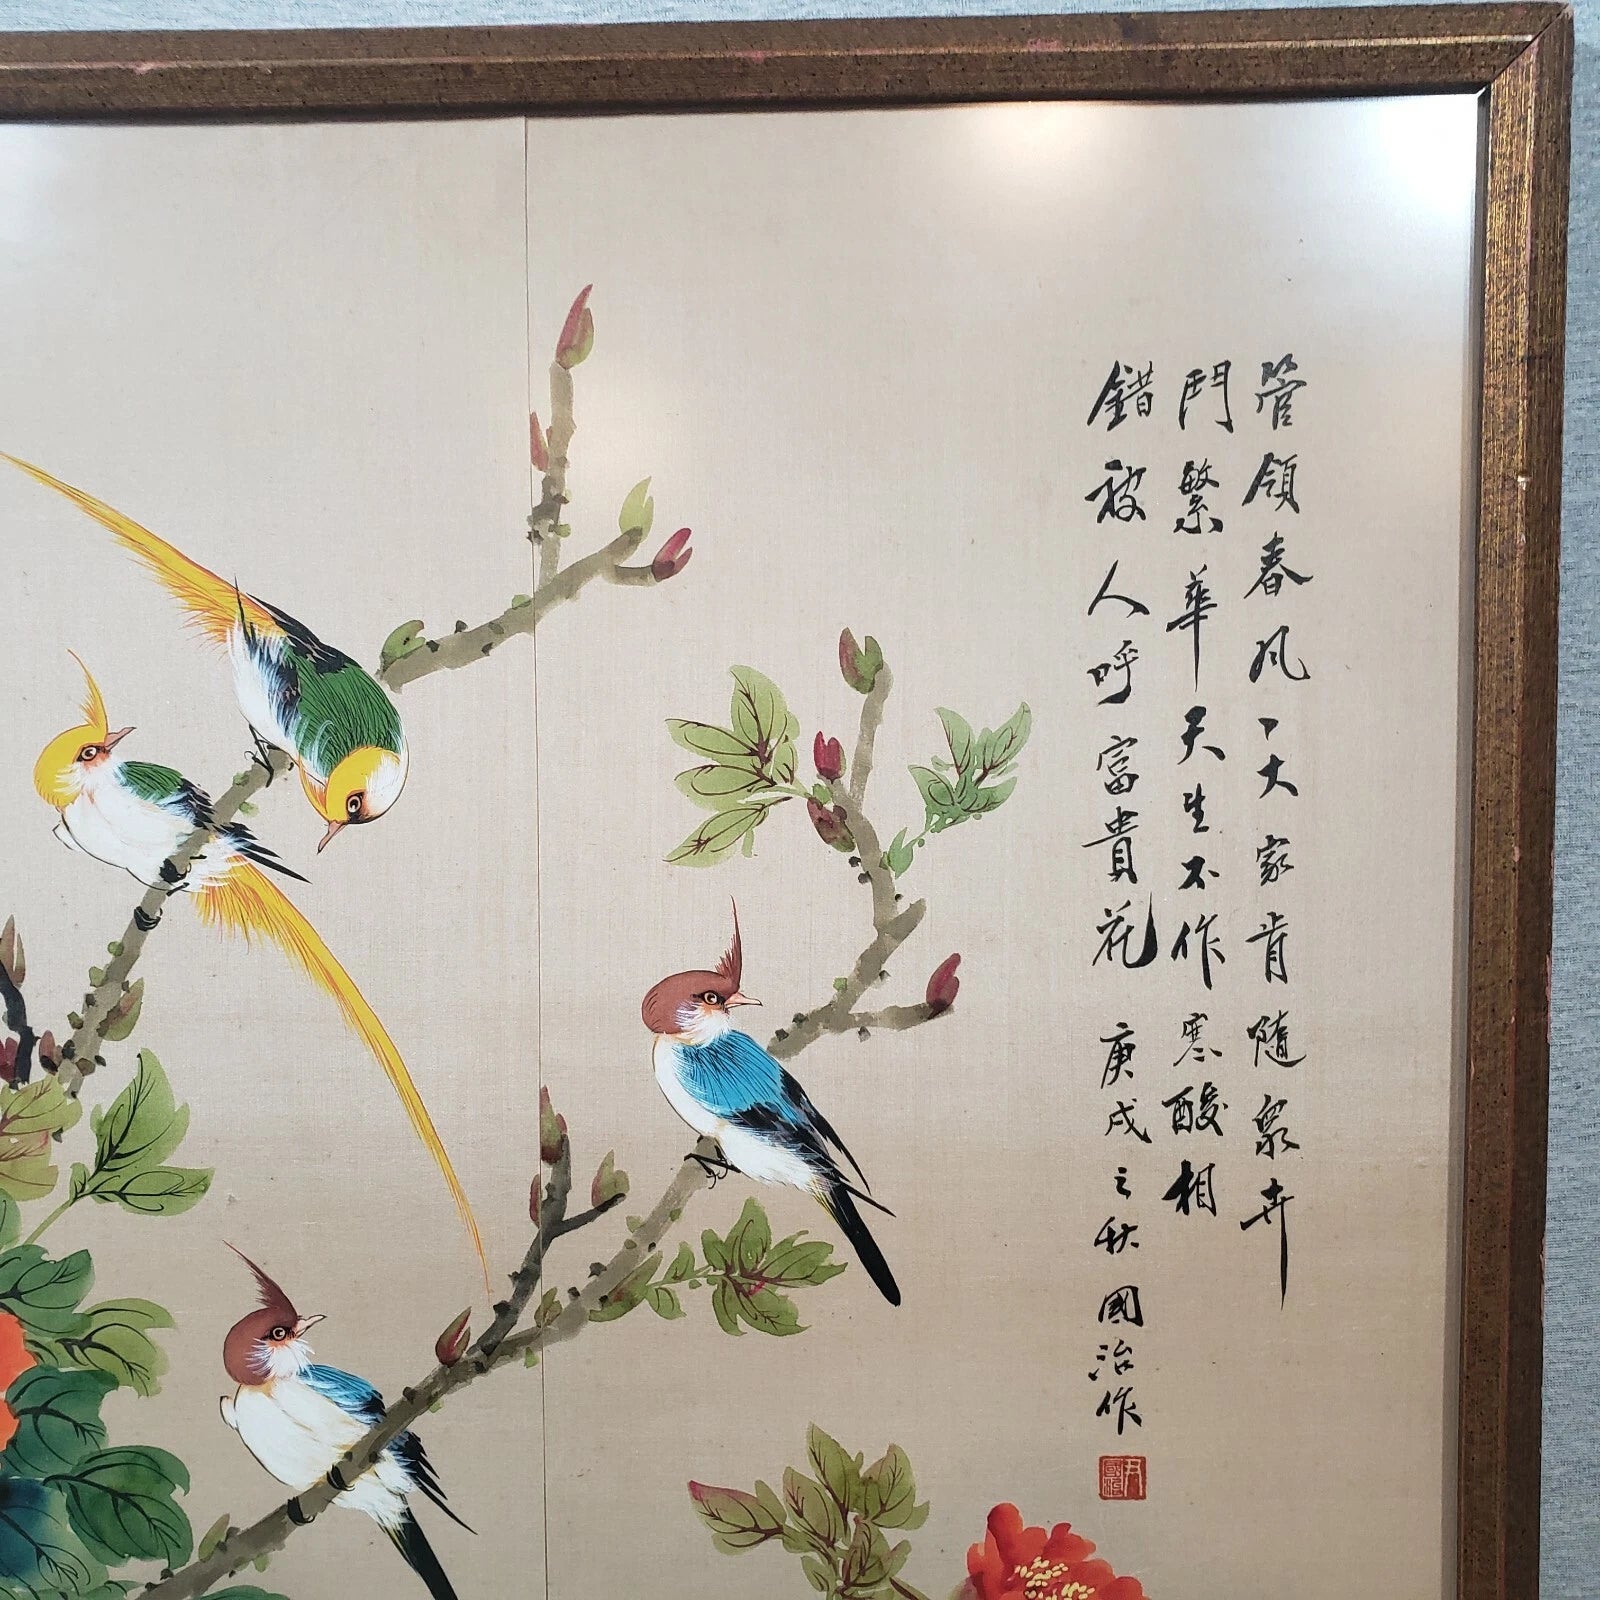 管領春風一大家肯隨眾卉
鬥繁華天生不作寒酸相
錯被人呼富貴花 庚戌之秋 國治作